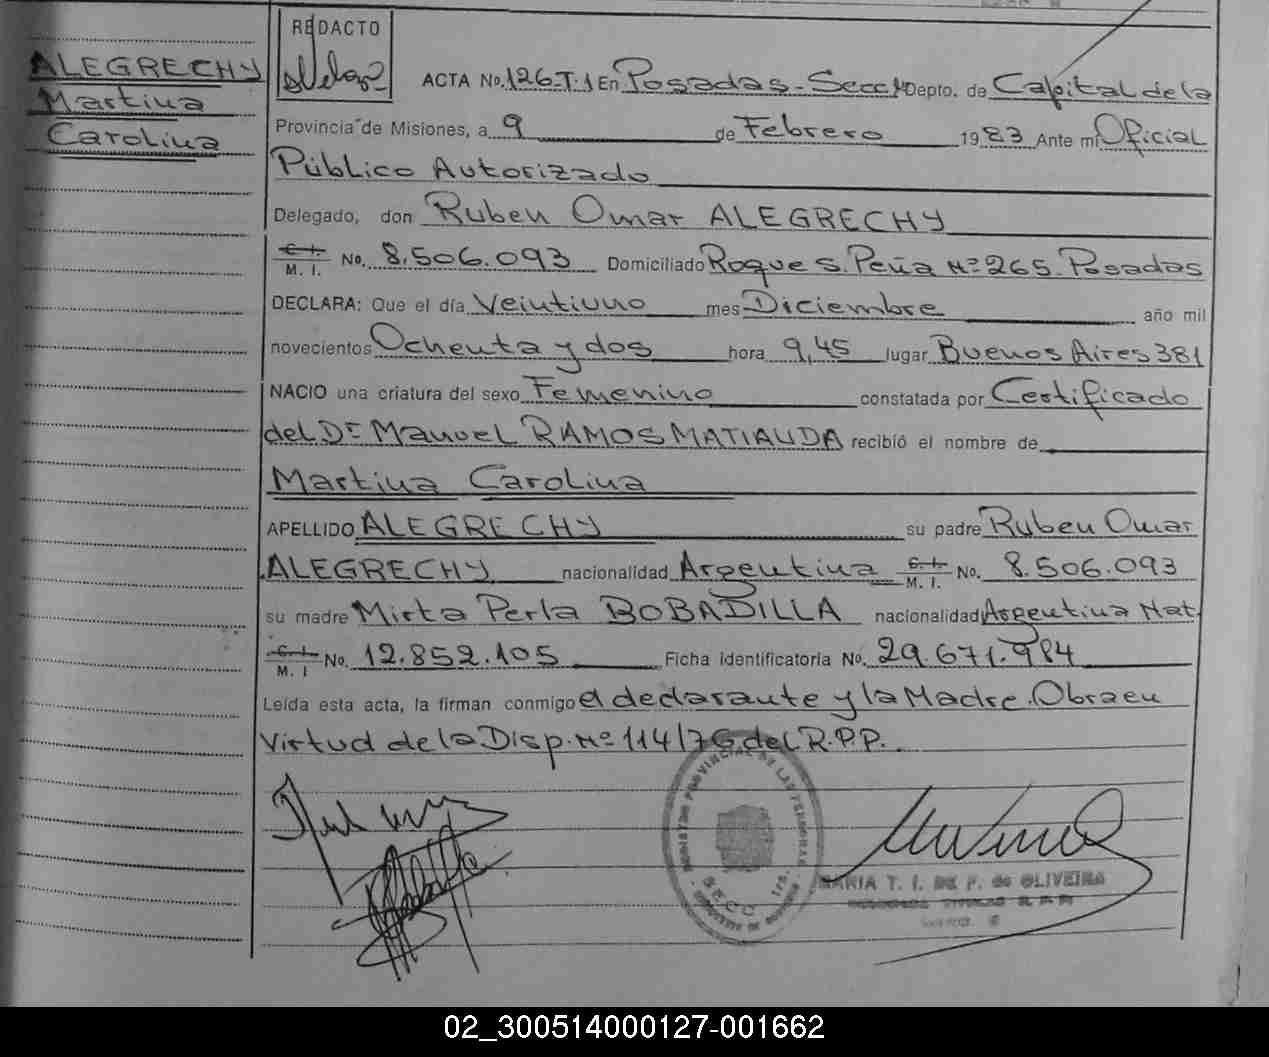 ALEGRECHY
Martina
Carolina
REDACTO
ACTA No. 126-T-1 En Posadas-Secc 1 Depto. de Capital de la
Provincia de Misiones, a 9 de Febrero 1983 Ante mí Oficial
Público Autorizado
Delegado, don Ruben Omar ALEGRECHY
C. I.
M. I. No. 8.506.093 Domiciliado Roque S. Peña Nº 265. Posadas
DECLARA: Que el día Veintiuno mes Diciembre año mil
novecientos Ochenta y dos hora 9,45 lugar Buenos Aires 381
NACIO una criatura del sexo Femenino constatada por Certificado
del Dr Manuel RAMOS MATIAUDA recibió el nombre de
Martina Carolina
APELLIDO ALEGRECHY su padre Ruben Omar
ALEGRECHY nacionalidad Argentina C. I. M. I. No. 8.506.093
su madre Mirta Perla BOBADILLA nacionalidad Argentina Nat
C. I.
M. I No. 12.852.105 Ficha identificatoria No. 29.671.984
Leída esta acta, la firman conmigo el declarante y la Madre. Obra en
Virtud de la Disp. Nº 114/76 del R.P.P.
REGISTRO PROVINCIAL DE LAS PERSONAS
SECC. 1
MARIA T. I. DE F. de OLIVEIRA
02_300514000127-001662